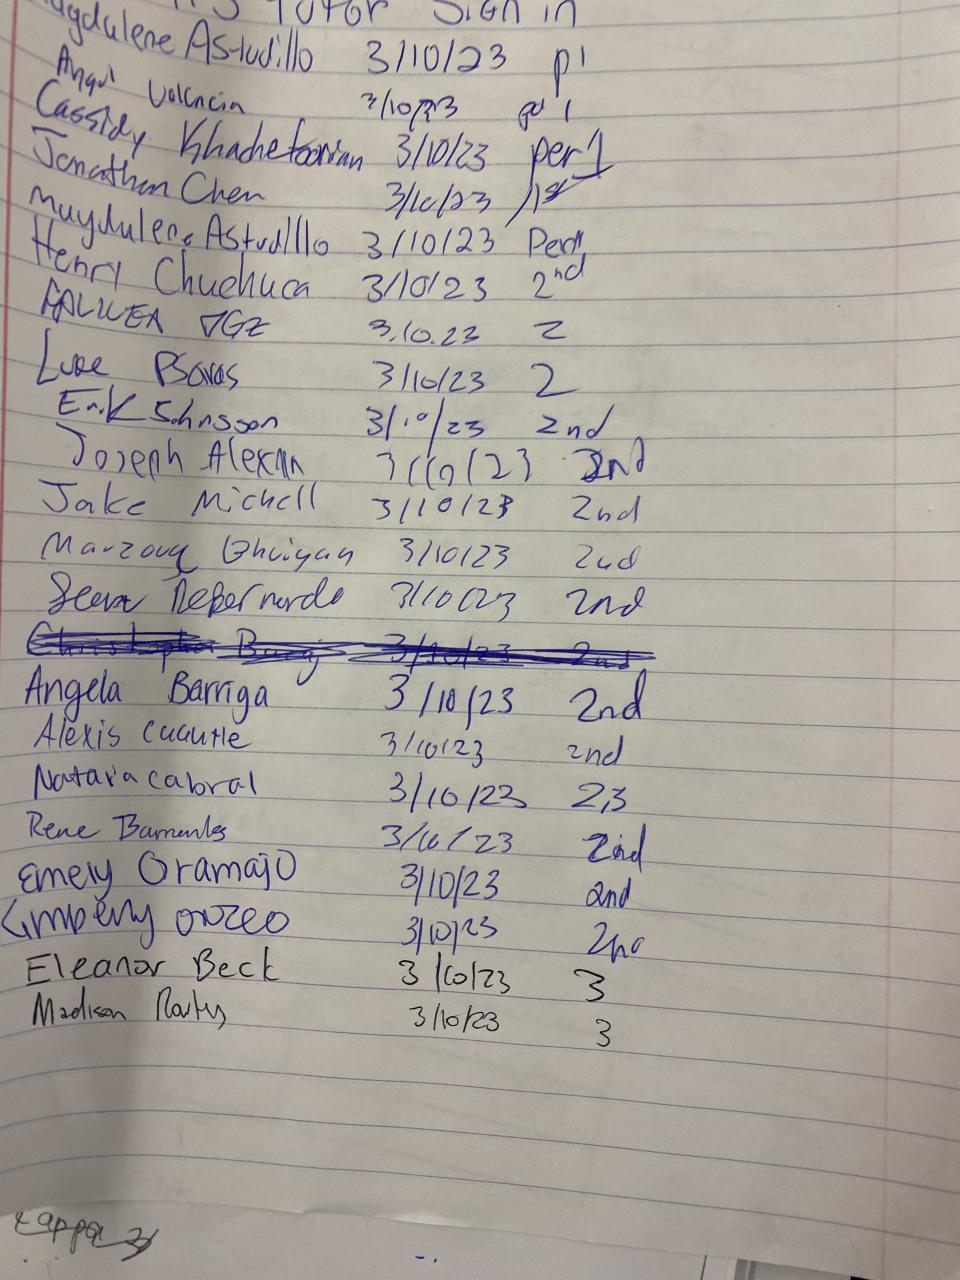 Tutor Sign in
Magdulene Astudillo 3/10/23 p1
Valencia 3/10/23
Cassidy Khachetoorian 3/10/23 per 1
Jonathan Chen 3/10/23 1st
Muydulene Astudillo 3/10/23 Per 1
Henry Chuchuca 3/10/23 2nd
3.10.23 2
Luke 3/10/23 2
Erik Johnsson 3/10/23 2nd
Joseph Alexan 3/10/23 2nd
Jake Michell 3/10/23 2nd
Marzouq Bhuiyan 3/10/23 2nd
3/10/23 2nd
Christopher 3/10/23 2nd
Angela Barriga 3/10/23 2nd
Alexis Cuautle 3/10/23 2nd
Cabral 3/10/23 2,3
Rene Barrientos 3/10/23 2nd
Emely Oramajo 3/10/23 2nd
3/10/23 2nd
Eleanor Beck 3/10/23 3
Madison 3/10/23 3
Kappa